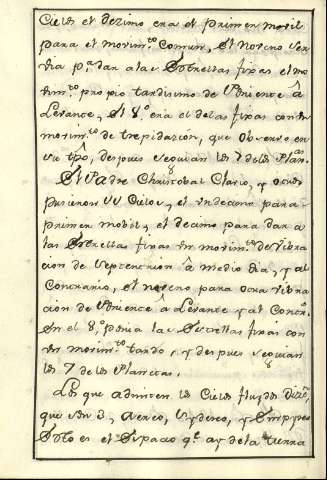 Cielos el dezimo era el primer mobil
para el movim.to comun, el noveno ser
via p.a dar a las Estrellas fixas el mo
vim.to proprio tardisimo de Poniente â
Levante, el 8.o era el de las fixas con un
movim.to de trepidazion, que observo en
su tpô, despues seguian los 7 de los Plan.as
El Padre Christobal Clavio, y otros
pusieron
Cielos, el undecimo para
primer mobil, el decimo para dar a
las Estrellas fixas un movim.to de libra
cion de Septentrion â medio dia, y al
contrario, el noveno para otra libra
cion de Poniente â Levante y al Contr.o
En el 8.o ponia las Estrellas fixas con
un movim.to tardo, y despues seguian
los 7 de los Planetas.
Los que admiten los Cielos fluydos
que son 3, Aereo, Sydereo, y Empyreo
es el Espacio q.e ay de la tierra